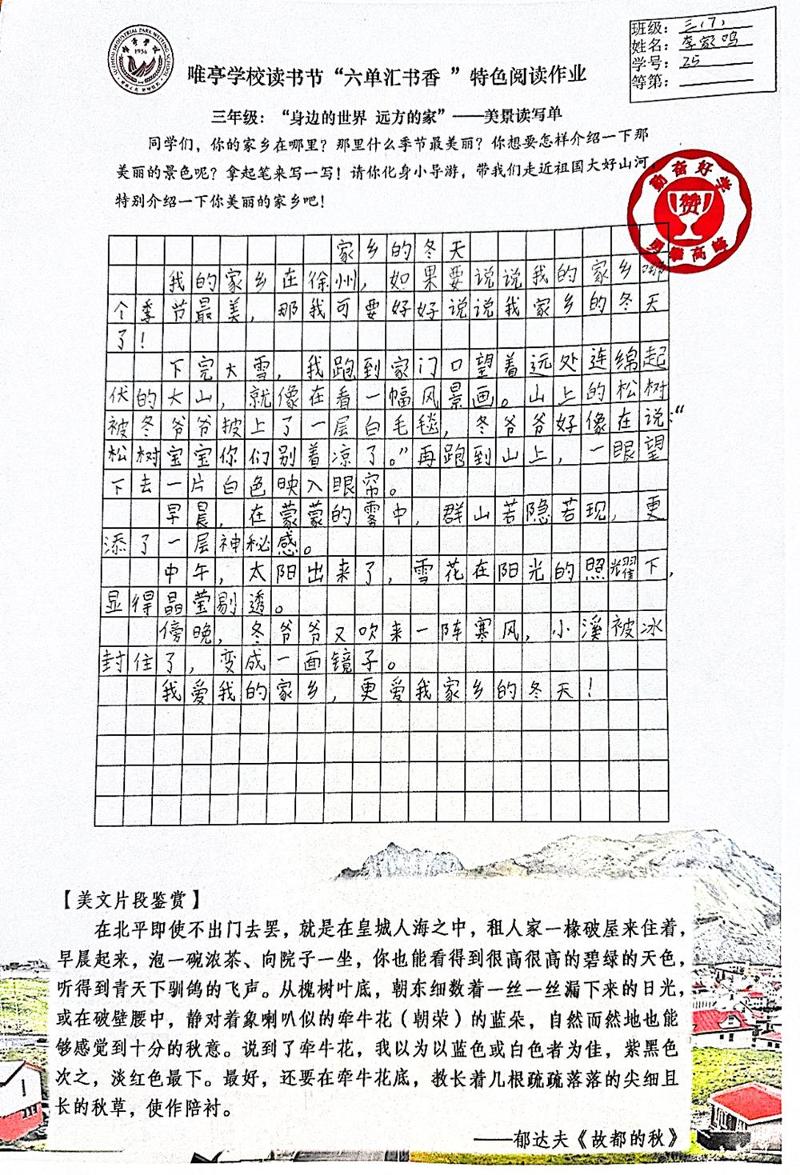 班级：三(7)
姓名：李家鸣
学号：25
等第：
1956
唯亭学校读书节“六单汇书香 ”特色阅读作业
三年级：“身边的世界 远方的家”——美景读写单
同学们，你的家乡在哪里？那里什么季节最美丽？你想要怎样介绍一下那
美丽的景色呢？拿起笔来写一写！请你化身小导游，带我们走近祖国大好山河
特别介绍一下你美丽的家乡吧！
勤奋好学
赞
勇攀高峰
家乡的冬天
我的家乡在徐州，如果要说说我的家乡哪
个季节最美，那我可要好好说说我家乡的冬天
了！
下完大雪，我跑到家门口望着远处连绵起
伏的大山，就像在看一幅风景画。山上的松树
被冬爷爷披上了一层白毛毯，冬爷爷好像在说：“
松树宝宝你们别着凉了。”再跑到山上，一眼望
下去一片白色映入眼帘。
早晨，在蒙蒙的雾中，群山若隐若现，更
添了一层神秘感。
中午，太阳出来了，雪花在阳光的照耀下，
显得晶莹剔透。
傍晚，冬爷爷又吹来一阵寒风，小溪被冰
封住了，变成一面镜子。
我爱我的家乡，更爱我家乡的冬天！
【美文片段鉴赏】
在北平即使不出门去罢，就是在皇城人海之中，租人家一椽破屋来住着，
早晨起来，泡一碗浓茶、向院子一坐，你也能看得到很高很高的碧绿的天色，
听得到青天下驯鸽的飞声。从槐树叶底，朝东细数着一丝一丝漏下来的日光，
或在破壁腰中，静对着象喇叭似的牵牛花（朝荣）的蓝朵，自然而然地也能
够感觉到十分的秋意。说到了牵牛花，我以为以蓝色或白色者为佳，紫黑色
次之，淡红色最下。最好，还要在牵牛花底，教长着几根疏疏落落的尖细且
长的秋草，使作陪衬。
——郁达夫《故都的秋》